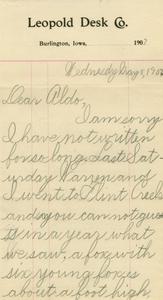 Leopold Desk Co.
Burlington, Iowa, 190
Wednesday
Dear Aldo,
I am sorry
I have not written
for so long. Last Sat-
urday Warren and
I went to Flint Creek
and you can not gue
ss in a year what
we saw, a fox with
six young foxes
about a foot high